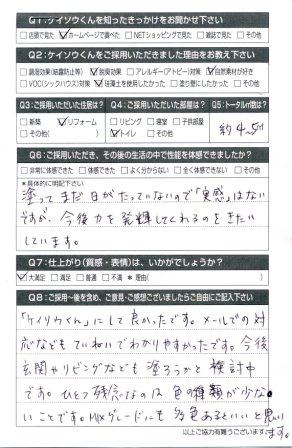 Q1:ケイソウくんを知ったきっかけをお聞かせ下さい
□店頭で見た ☑ホームページで調べた □NETショッピングで見た □雑誌で見た □その他
Q2:ケイソウくんをご採用いただきました理由をお教え下さい
□調湿効果(結露防止等) ☑脱臭効果 □アレルギー(アトピー)対策 ☑自然素材が好き
□VOC(シックハウス)対策 ☑珪藻土を使用したかった □塗り壁にしたかった □その他
Q3:ご採用いただいた住居は?
□新築 ☑リフォーム
□その他( )
Q4:ご採用いただいた部屋は?
□リビング □寝室 □子供部屋
☑トイレ □その他
Q5:トータル㎡数は?
約4.5㎡
Q6:ご採用いただき、その後の生活の中で性能を体感できましたか?
□非常に体感できた □体感できた □よく分からない □全く体感できない □その他
*具体的に明記下さい
塗ってまだ日がたっていないので「実感」はない
ですが、今後力を発揮してくれるのをきたい
しています。
Q7:仕上がり(質感・表情)は、いかがでしょうか?
☑大満足 □満足 □普通 □不満 *理由( )
Q8:ご採用～後を含め、ご意見・ご感想ございましたらご自由にご記入下さい
「ケイソウくん」にして良かったです。メールでの対
応などもていねいでわかりやすかったです。今後
玄関やリビングなども塗ろうかと検討中
です。ひとつ残念なのは色の種類が少な
いことです。MIXグレードにも多色あるといいと思い
ます。
以上ご協力有難うございます。